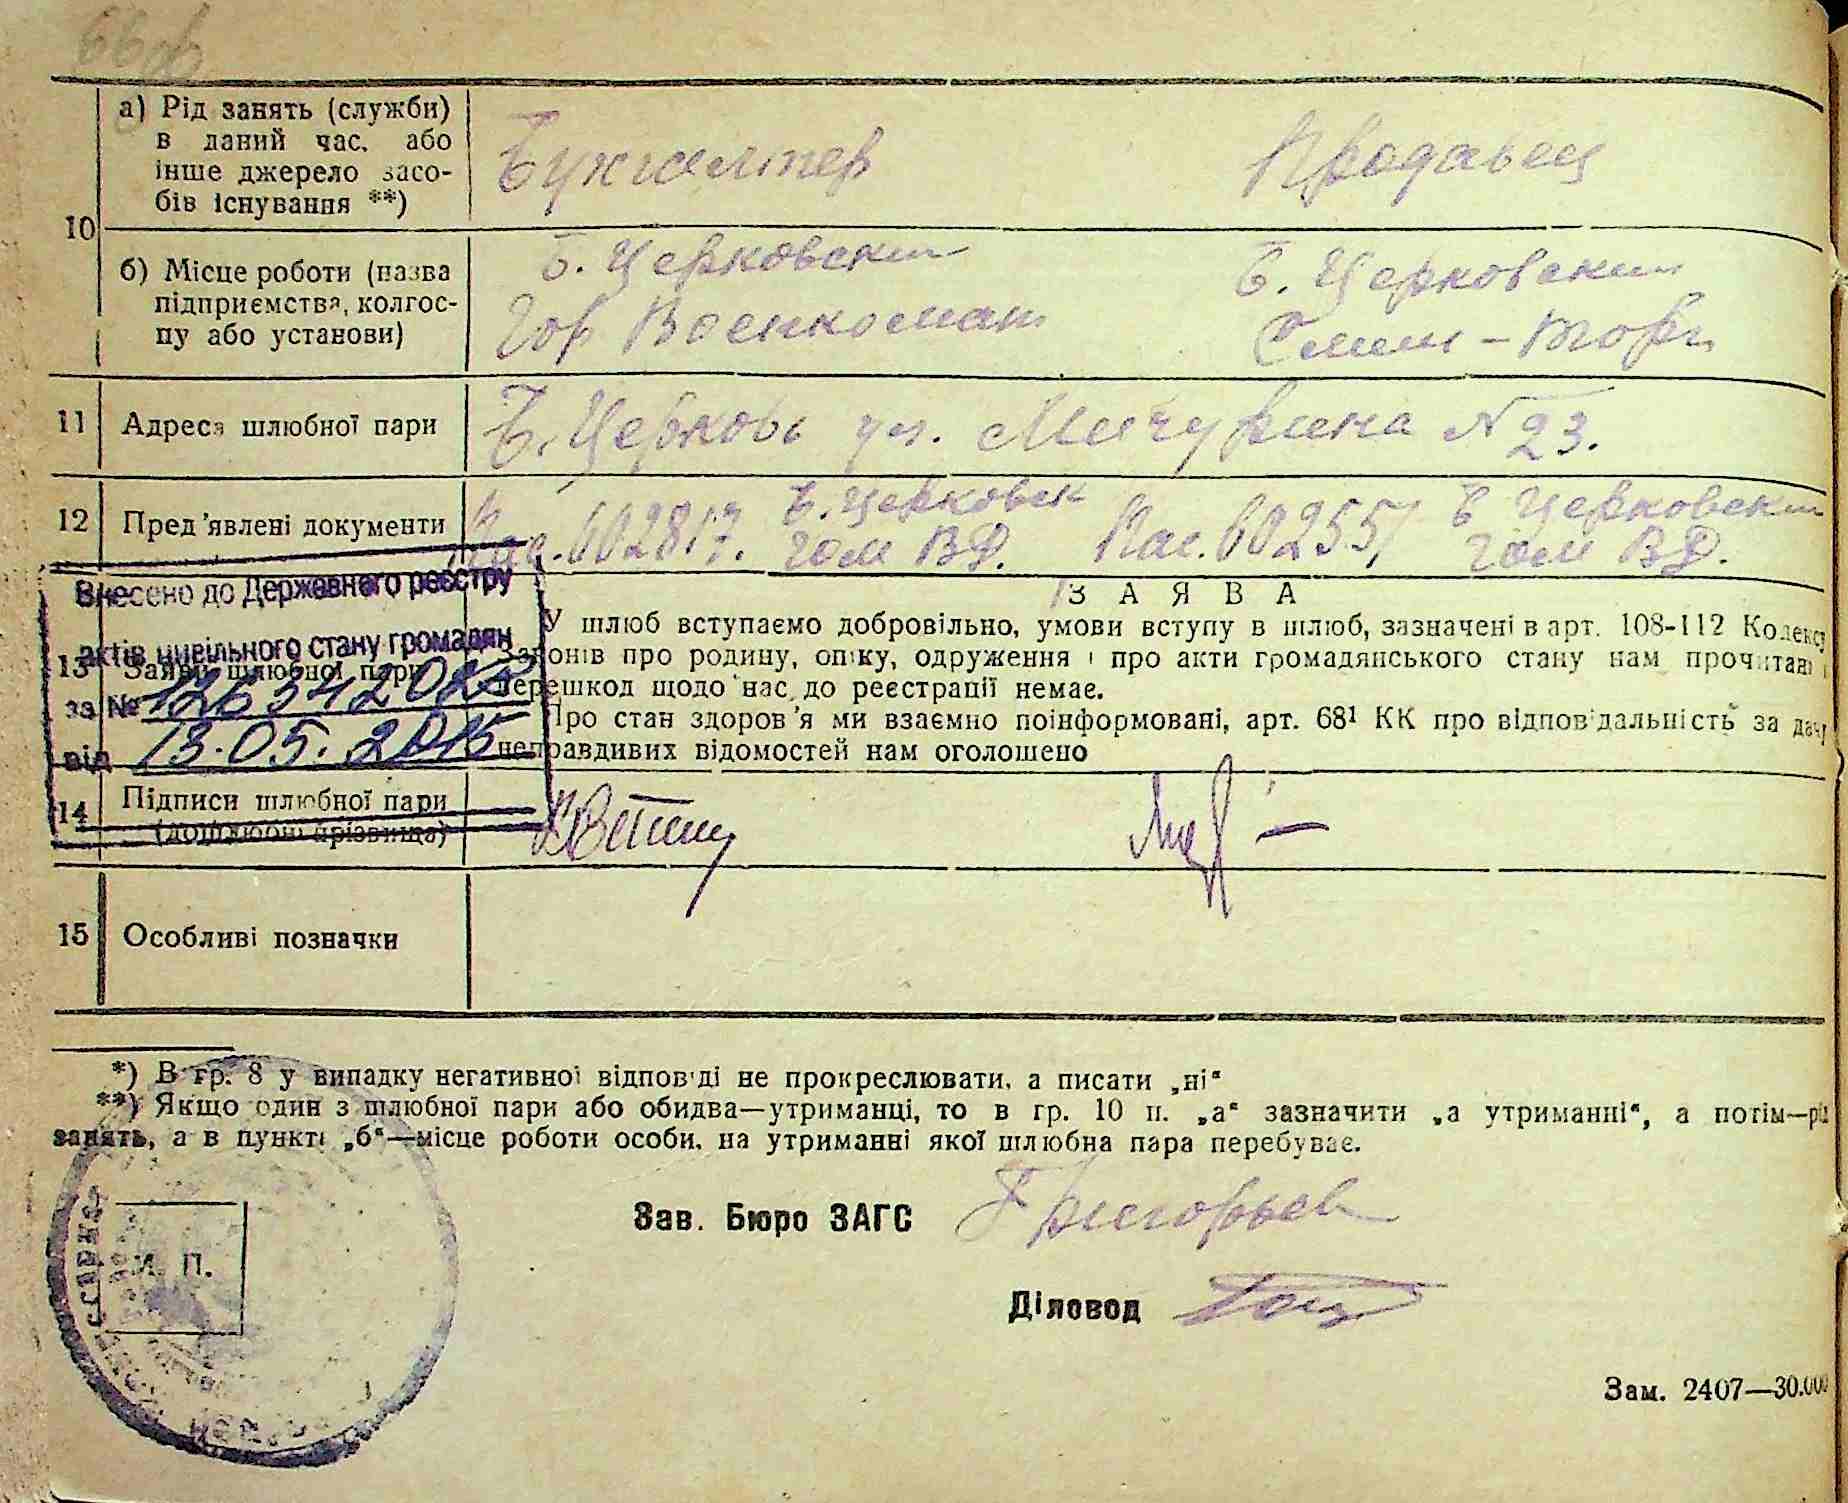 66об
10
а) Рід занять (служби)
в даний час, або
інше джерело засо-
бів існування **)
Бухгалтер
Продавец
б) Місце роботи (назва
підприємства, колгос-
пу або установи)
Б. Церковский
Гор Военкомат
Б. Церковский
Смеш-торг
11 Адреса шлюбної пари
Б. Церковь ул. Мичурина N 23.
12 Пред'явлені документи
Пас. 602817. Б. Церковск
ГОМ ВД.
Пас. 602551 Б Церковский
ГОМ ВД.
Внесено до Державного реєстру
актів цивільного стану громадян
за №
від 13.05.2015
13 Заява шлюбної пари
ЗАЯВА
У шлюб вступаємо добровільно, умови вступу в шлюб, зазначені в арт. 108-112 Кодексу
Законів про родину, опіку, одруження і про акти громадянського стану нам прочитані і
перешкод щодо нас до реєстрації немає.
Про стан здоров'я ми взаємно поінформовані, арт. 68¹ КК про відповідальність за дачу
неправдивих відомостей нам оголошено
14 Підписи шлюбної пари
(дошлюбні прізвища)
15 Особливі позначки
*) В гр. 8 у випадку негативної відповіді не прокреслювати, а писати „ні“
**) Якщо один з шлюбної пари або обидва—утриманці, то в гр. 10 п. „а“ зазначити „а утриманні“, а потім—рід
занять, а в пункті „б“—місце роботи особи, на утриманні якої шлюбна пара перебуває.
Зав. Бюро ЗАГС Григорьев
М. П.
Діловод
Зам. 2407—30.000